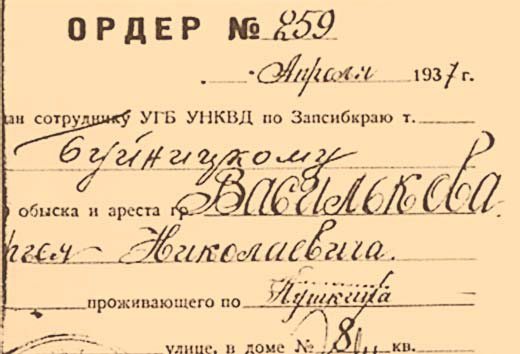 ОРДЕР № 259
Апреля 1937 г.
ан сотруднику УГБ УНКВД по Запсибкраю т.
Буйницкому
обыска и ареста гр. Василькова
ргея Николаевича.
проживающего по Пушкина
улице, в доме № 8 кв.